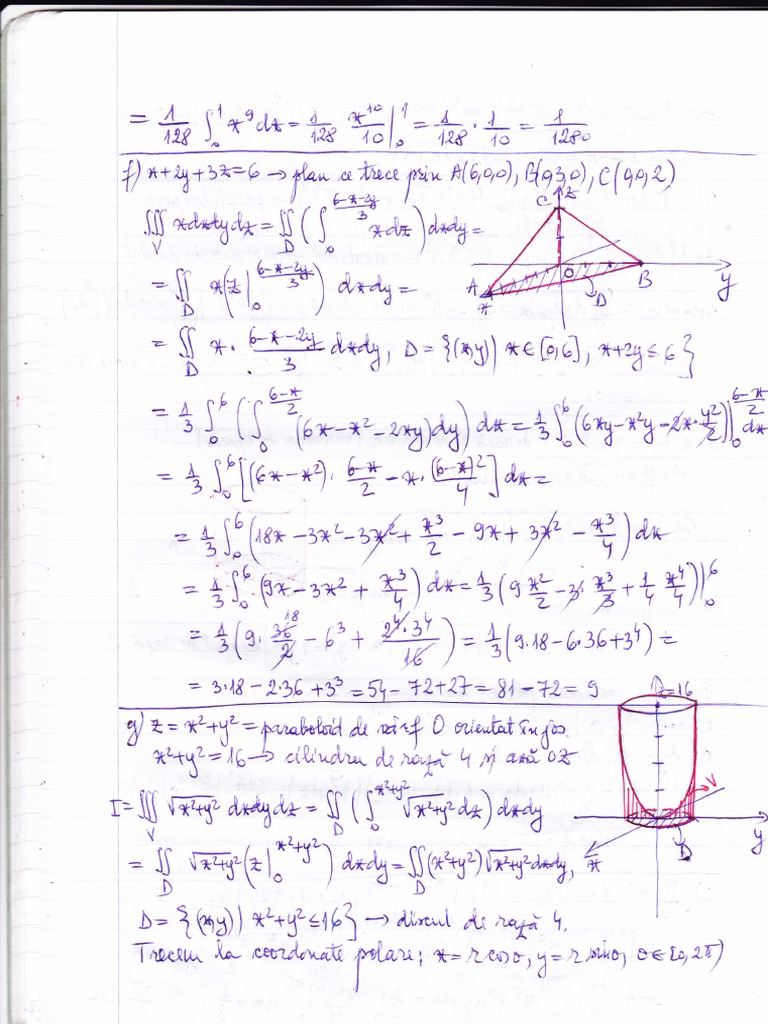 = 1/128 ∫₀¹ x⁹dx = 1/128 x¹⁰/10 |₀¹ = 1/128 · 1/10 = 1/1280
f) x+2y+3z=6 → plan ce trece prin A(6,0,0), B(0,3,0), C(0,0,2)
∭_V xdxdydz = ∬_D (∫₀^((6-x-2y)/3) xdz) dxdy =
= ∬_D x(z |₀^((6-x-2y)/3)) dxdy =
= ∬_D x · (6-x-2y)/3 dxdy, D = {(x,y) | x∈[0,6], x+2y≤6}
= 1/3 ∫₀⁶ (∫₀^((6-x)/2) (6x-x²-2xy)dy) dx = 1/3 ∫₀⁶ (6xy-x²y-2x·y²/2)|₀^((6-x)/2) dx
= 1/3 ∫₀⁶ [(6x-x²) · (6-x)/2 - x · (6-x)²/4] dx =
= 1/3 ∫₀⁶ (18x - 3x² - 3x² + x³/2 - 9x + 3x² - x³/4) dx
= 1/3 ∫₀⁶ (9x - 3x² + x³/4) dx = 1/3 (9 x²/2 - 3 · x³/3 + 1/4 x⁴/4)|₀⁶
= 1/3 (9 · 36/2 - 6³ + 2⁴·3⁴/16) = 1/3 (9·18 - 6·36 + 3⁴) =
= 3·18 - 2·36 + 3³ = 54 - 72 + 27 = 81 - 72 = 9
C z
A x O B y
D
g) z = x²+y² = paraboloid de vârf O orientat în jos.
x²+y² = 16 → cilindru de rază 4 și axă OZ
I = ∭_V √(x²+y²) dxdydz = ∬_D (∫₀^(x²+y²) √(x²+y²) dz) dxdy
= ∬_D √(x²+y²) (z |₀^(x²+y²)) dxdy = ∬_D (x²+y²) √(x²+y²) dxdy,
D = {(x,y) | x²+y² ≤ 16} → discul de rază 4.
Trecem la coordonate polare; x = r cosθ, y = r sinθ, θ∈[0,2π)
z=16
V
x D y